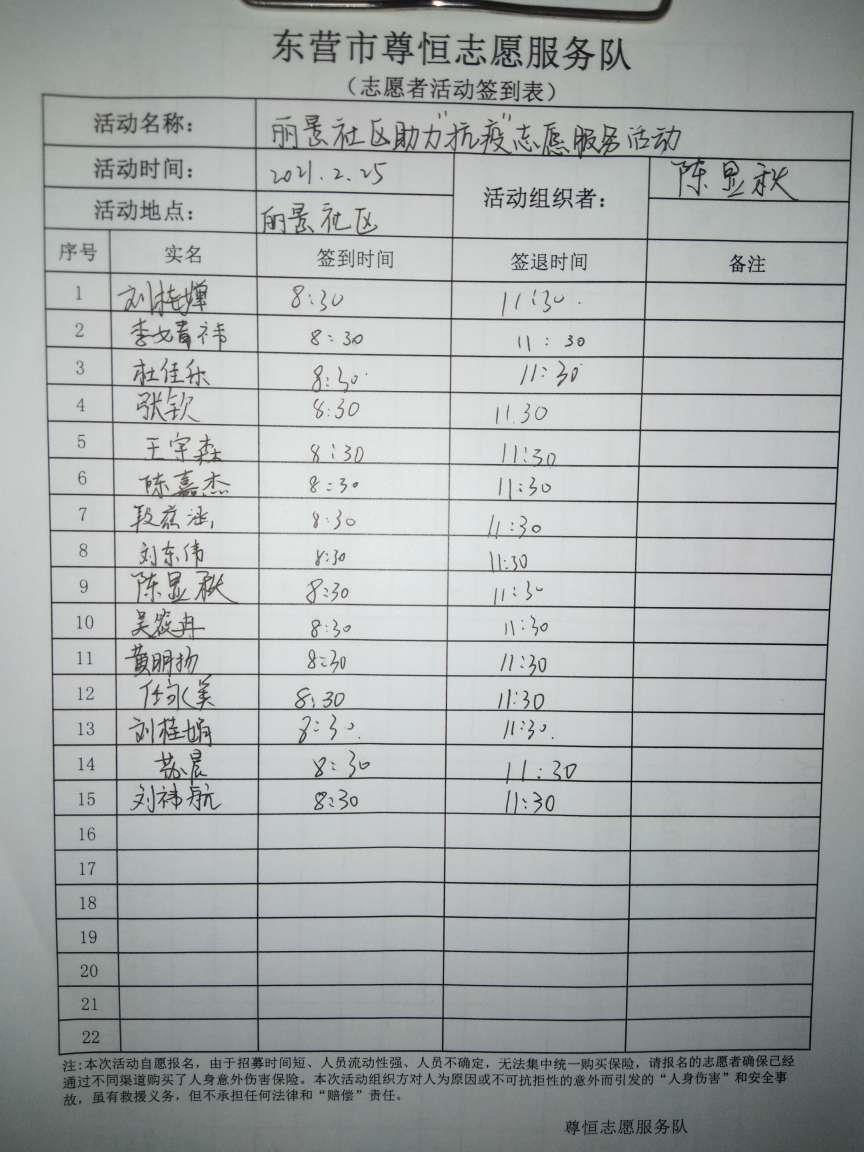 东营市尊恒志愿服务队
（志愿者活动签到表）
活动名称： 丽景社区助力"抗疫"志愿服务活动
活动时间： 2021.2.25 活动组织者： 陈显秋
活动地点： 丽景社区
序号 实名 签到时间 签退时间 备注
1 刘桂婵 8:30 11:30.
2 李 祎 8:30 11:30
3 杜佳乐 8:30 11:30
4 张钦 8:30 11.30
5 王宇森 8:30 11:30
6 陈嘉杰 8:30 11:30
7 段 涵 8:30 11:30
8 刘东伟 8:30 11:30
9 陈显秋 8:30 11:30
10 吴筱冉 8:30 11:30
11 黄明扬 8:30 11:30
12 任永美 8:30 11:30
13 刘桂娟 8:30. 11:30.
14 苏晨 8:30 11:30
15 刘祎航 8:30 11:30
16
17
18
19
20
21
22
注:本次活动自愿报名，由于招募时间短、人员流动性强、人员不确定，无法集中统一购买保险，请报名的志愿者确保已经
通过不同渠道购买了人身意外伤害保险。本次活动组织方对人为原因或不可抗拒性的意外而引发的“人身伤害”和安全事
故，虽有救援义务，但不承担任何法律和“赔偿”责任。
尊恒志愿服务队